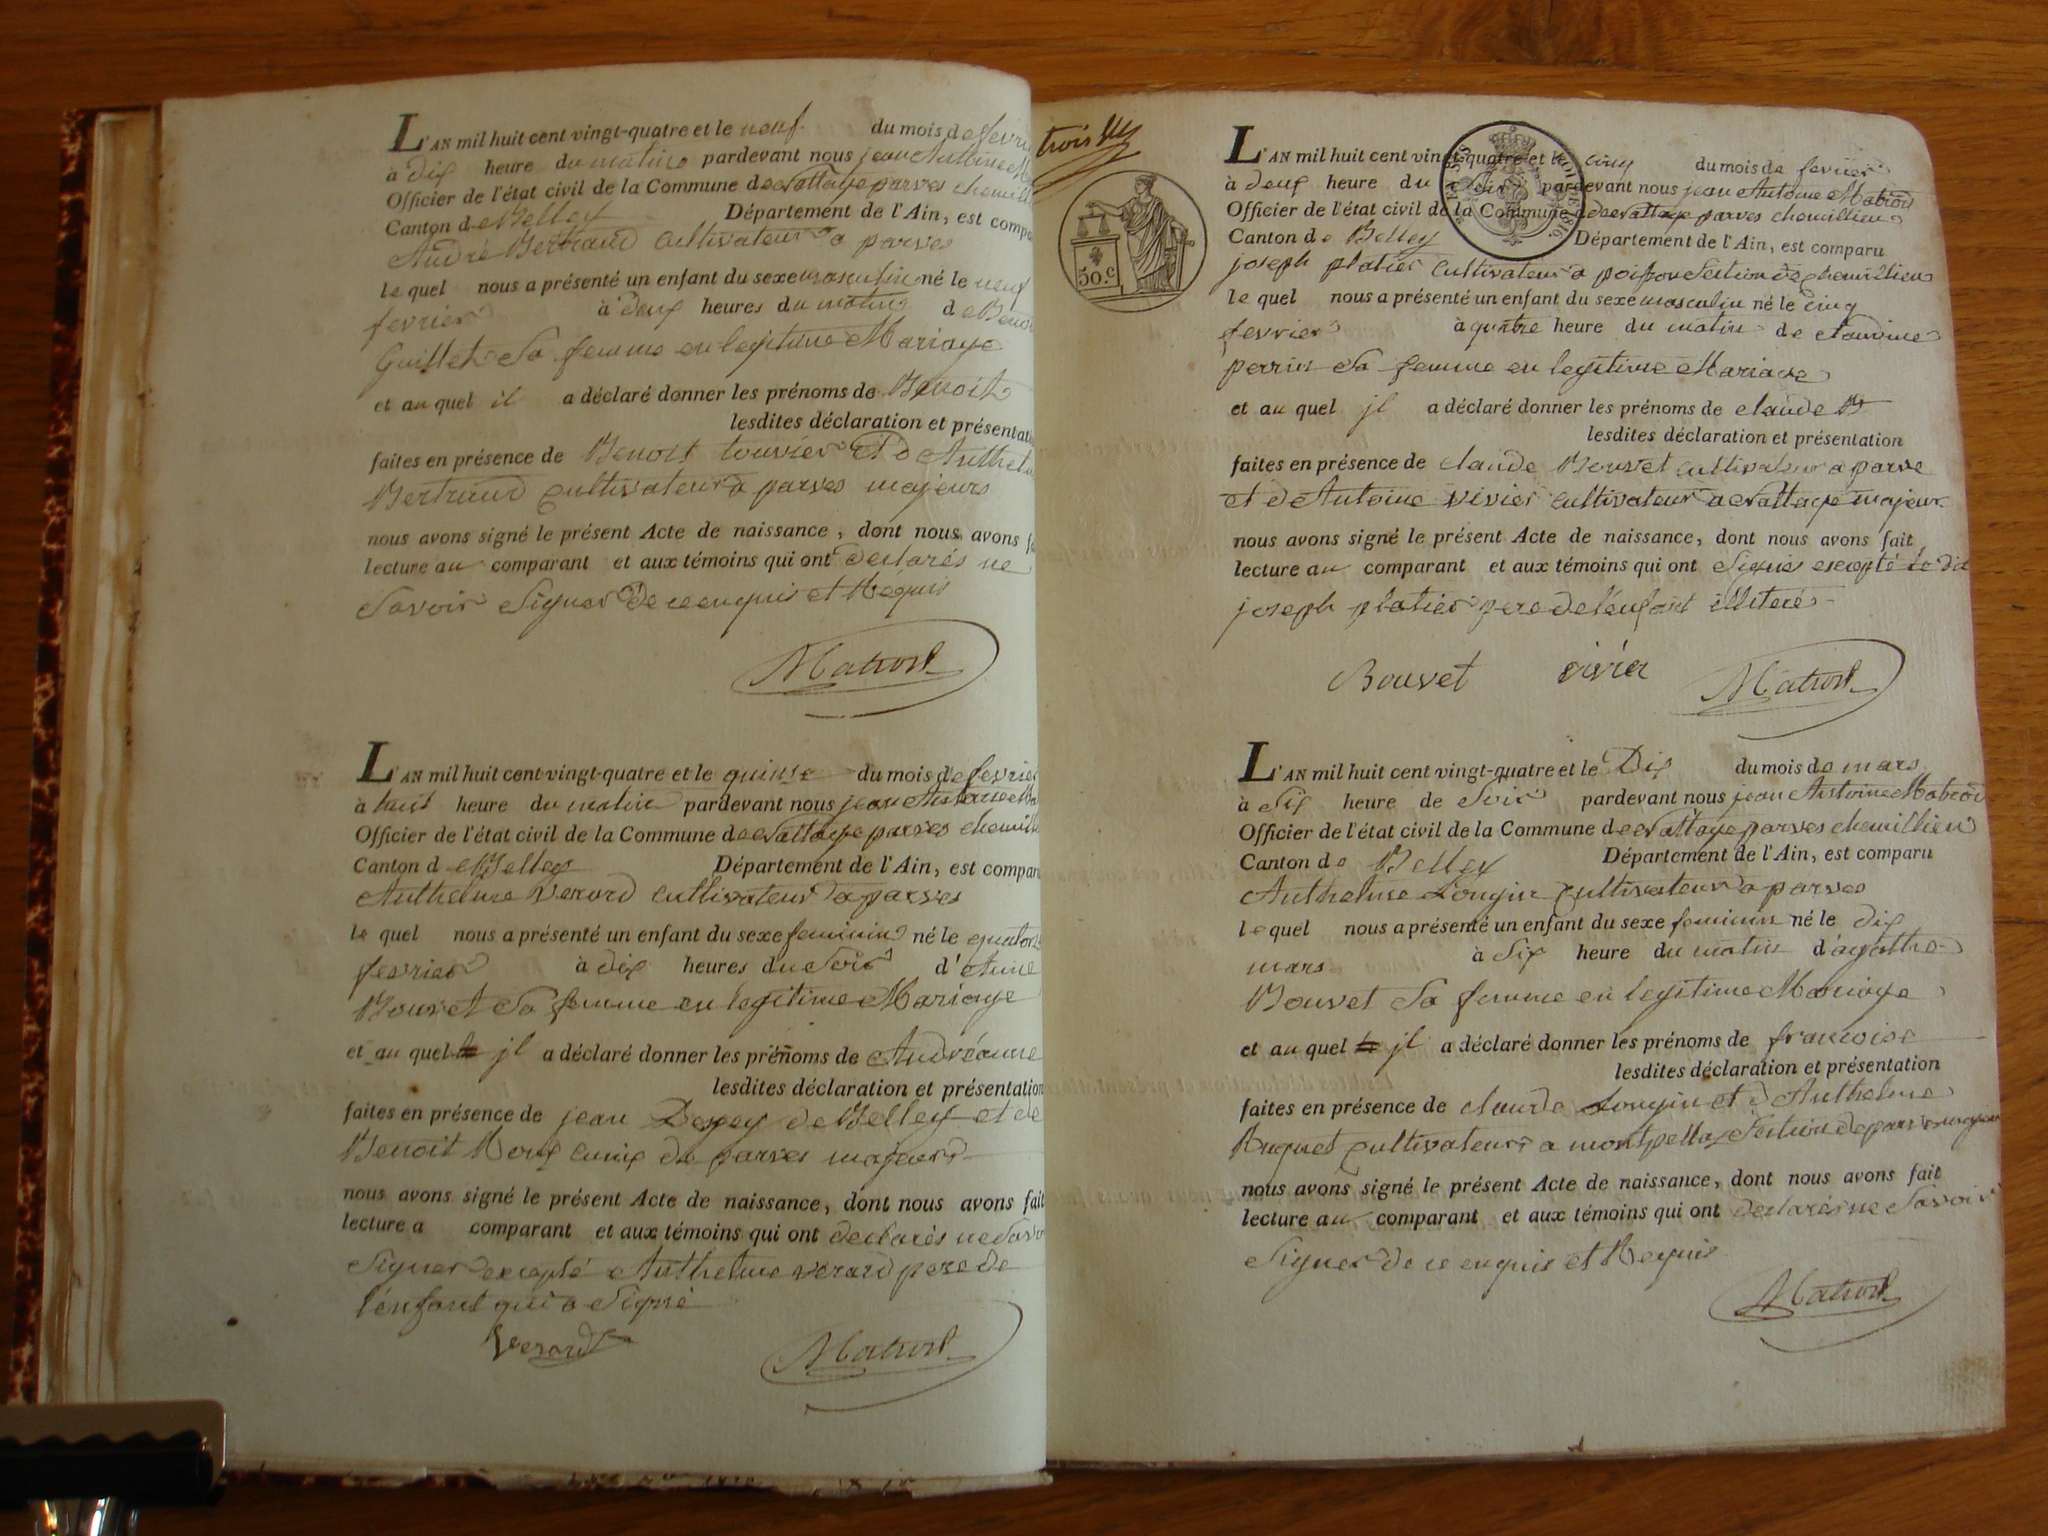 L'AN mil huit cent vingt-quatre et le neuf du mois de fevri
à dix heure du matin pardevant nous jean Antoine M
Officier de l'état civil de la Commune de Nattage parves chemilli
Canton de Belley Département de l'Ain, est compa
André Bertrand cultivateur a parves
le quel nous a présenté un enfant du sexe masculin né le neuf
fevrier à deux heures du matin de Benoi
Guillet Sa femme en legitime Mariage
et au quel il a déclaré donner les prénoms de Benoit
lesdites déclaration et présentati
faites en présence de Benoit touvier Et D Anthel
Bertrand cultivateur a parves majeurs
nous avons signé le présent Acte de naissance, dont nous avons f
lecture au comparant et aux témoins qui ont declarés ne
Savoir Signer De ce enquis et Requis
Matrod
L'AN mil huit cent vingt-quatre et le quinse du mois de fevrier
à huit heure du matin pardevant nous jean Antoine Ma
Officier de l'état civil de la Commune de Nattage parves chemill
Canton de Belley Département de l'Ain, est compar
Anthelme Verard cultivateur a parves
le quel nous a présenté un enfant du sexe feminin né le quator
fevrier à dix heures du Soir d'Anne
Bouvet Sa femme en legitime Mariage
et au quel jl a déclaré donner les prénoms de Andréanne
lesdites déclaration et présentation
faites en présence de jean de Belley et de
Benoit Roux de parves majeurs
nous avons signé le présent Acte de naissance, dont nous avons fait
lecture a comparant et aux témoins qui ont declarés ne Savo
Signer excepté Anthelme Verard pere de
l'enfant qui a Signé
Verard Matrod
trois
50.c
L'AN mil huit cent vingt-quatre et le cinq du mois de fevrier
à deux heure du Soir pardevant nous jean Antoine Matrod
Officier de l'état civil de la Commune de Nattage parves chemillieu
Canton de Belley Département de l'Ain, est comparu
joseph platier cultivateur a poisson Section de chemillieu
le quel nous a présenté un enfant du sexe masculin né le cinq
fevrier à quatre heure du matin de claudine
perrin Sa femme en legitime Mariage
et au quel jl a déclaré donner les prénoms de claude
lesdites déclaration et présentation
faites en présence de claude Bouvet cultivateur a parve
et d Antoine vivier cultivateur a Nattage majeur
nous avons signé le présent Acte de naissance, dont nous avons fait
lecture au comparant et aux témoins qui ont Signés excepté le dit
joseph platier pere de l'enfant illiteré
Bouvet vivier Matrod
L'AN mil huit cent vingt-quatre et le Dix du mois de mars
à Six heure de Soir pardevant nous jean Antoine Matrod
Officier de l'état civil de la Commune de Nattage parves chemillieu
Canton de Belley Département de l'Ain, est comparu
Anthelme Longin cultivateur a parves
le quel nous a présenté un enfant du sexe feminin né le dix
mars à Six heure du matin d'agathe
Bouvet Sa femme en legitime Mariage
et au quel jl a déclaré donner les prénoms de francoise
lesdites déclaration et présentation
faites en présence de claude Longin et d Anthelme
Huguet cultivateurs a montpellaz Section de parves majeur
nous avons signé le présent Acte de naissance, dont nous avons fait
lecture au comparant et aux témoins qui ont declarés ne Savoir
Signer de ce enquis et Requis
Matrod